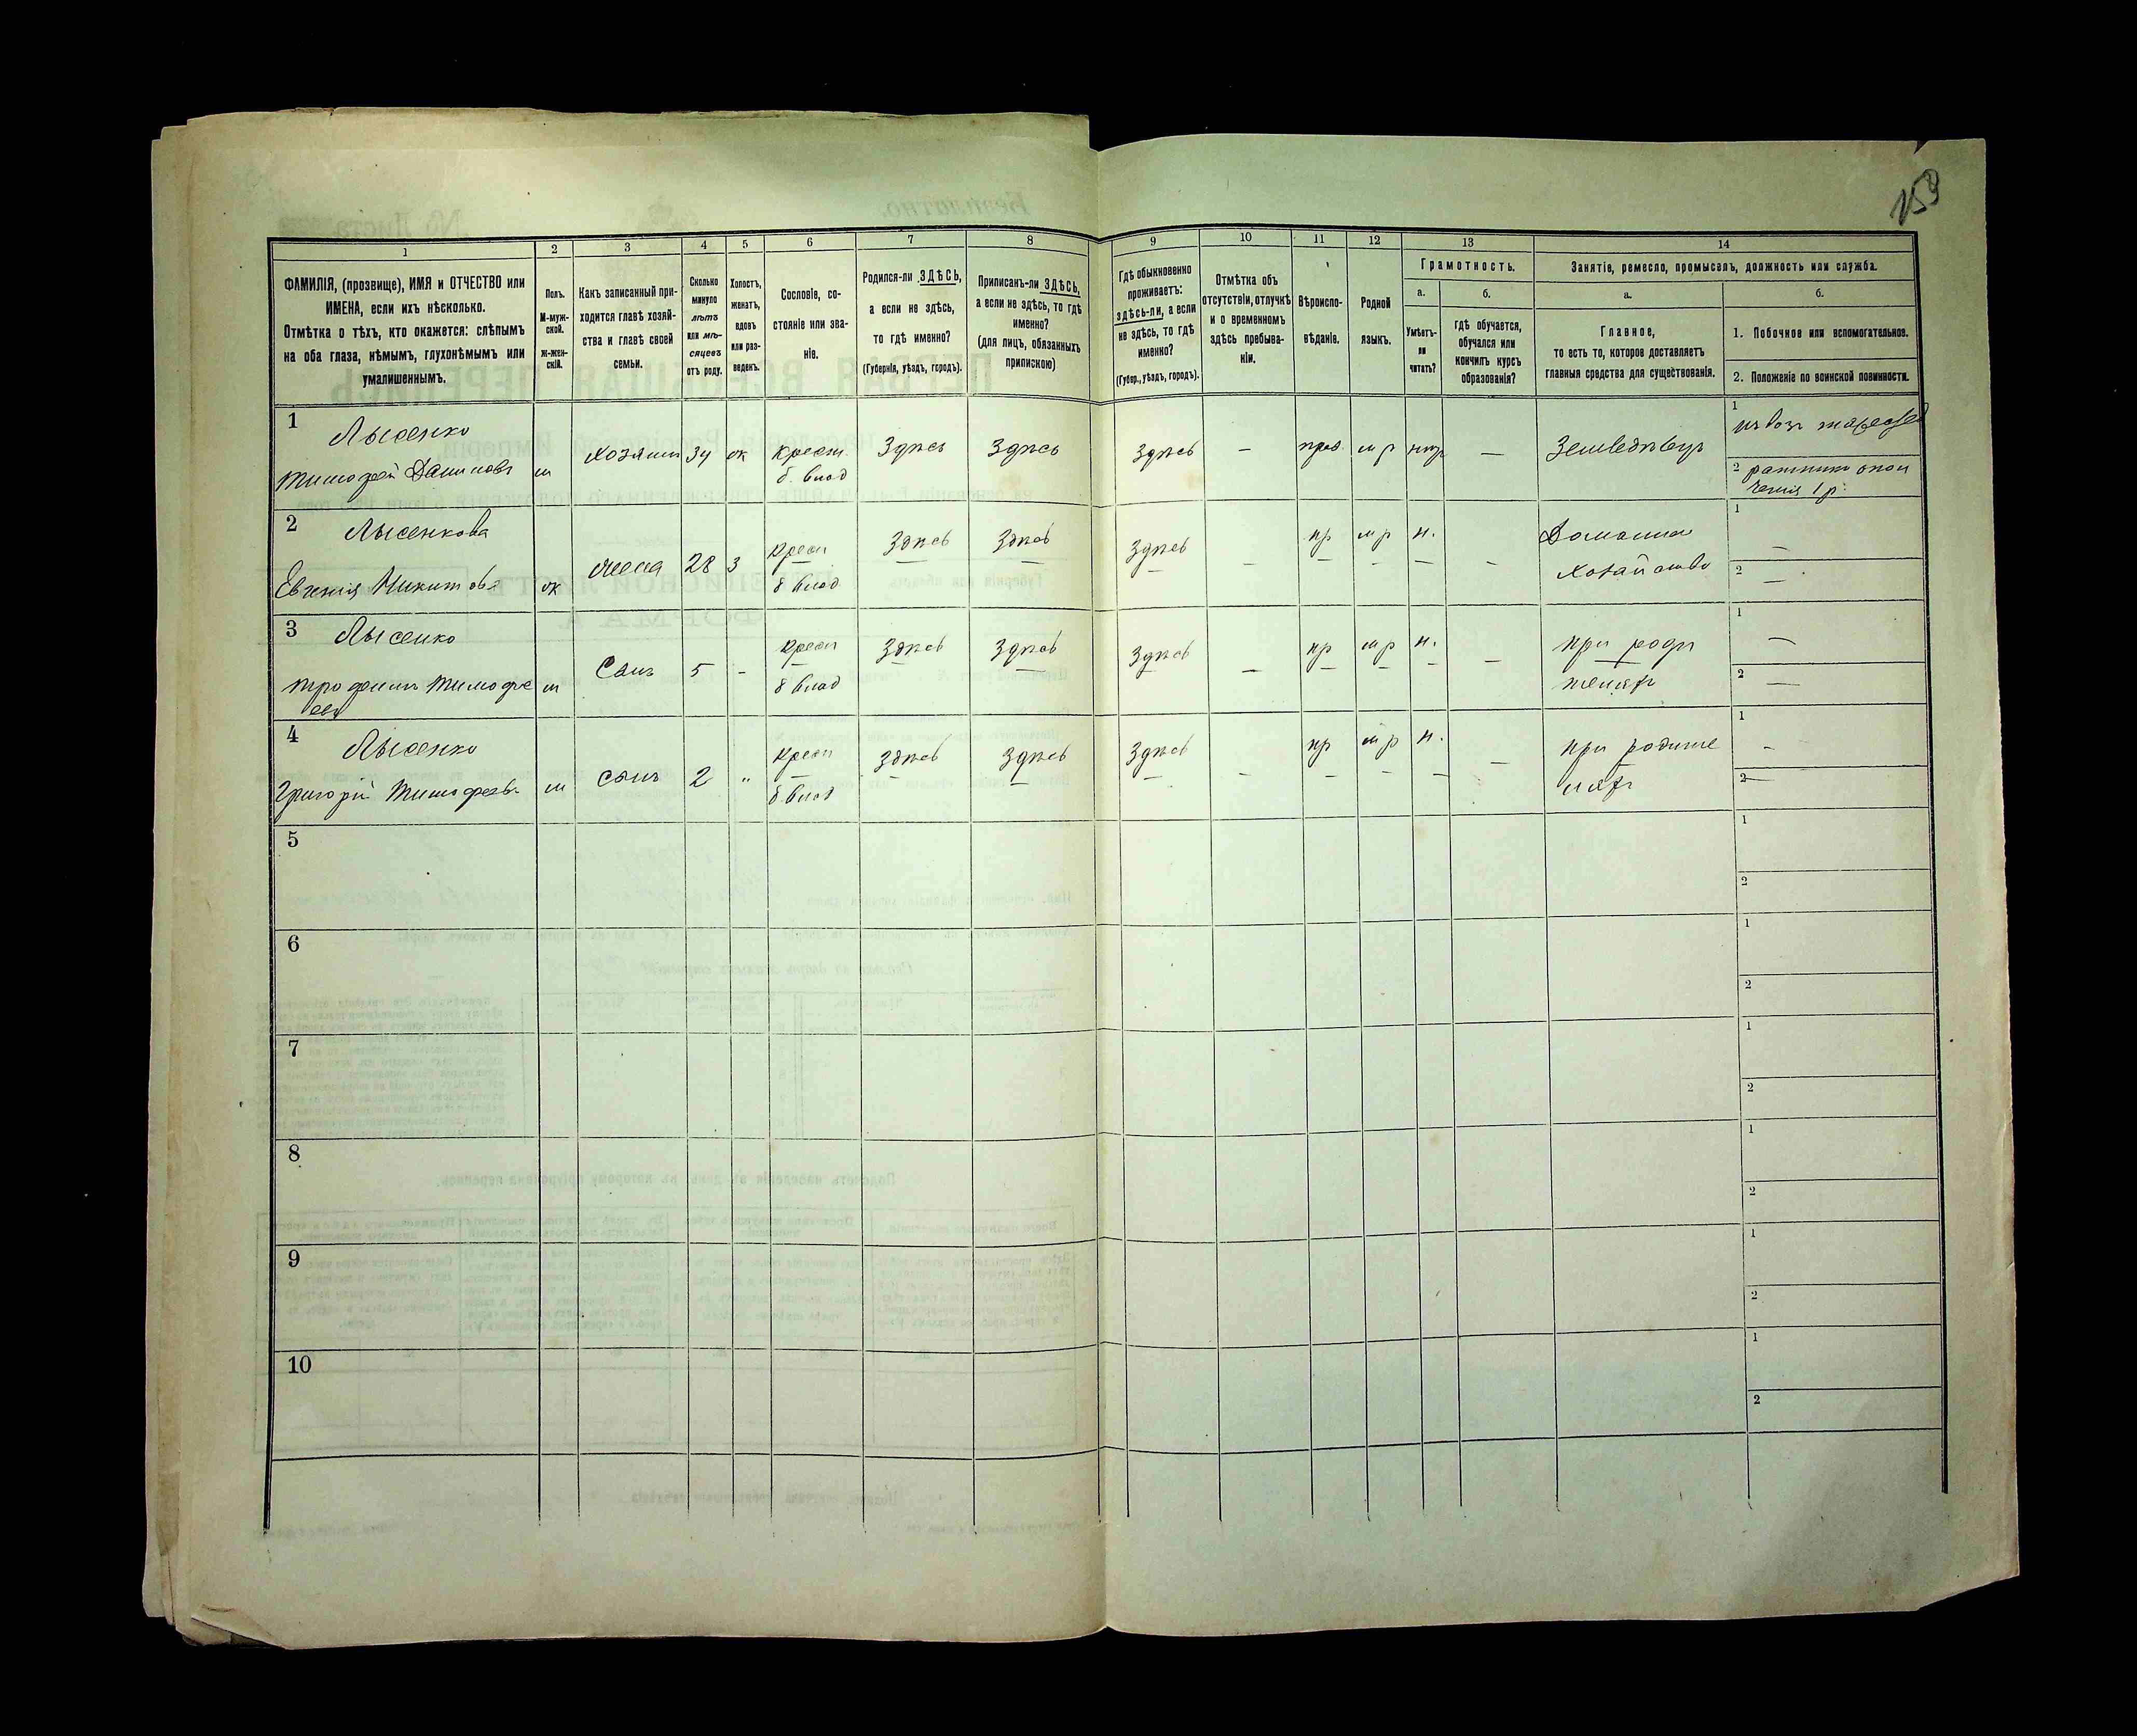 159
1
2
3
4
5
6
7
8
9
10
11
12
13
14
ФАМИЛІЯ, (прозвище), ИМЯ и ОТЧЕСТВО или
ИМЕНА, если ихъ нѣсколько.
Отмѣтка о тѣхъ, кто окажется: слѣпымъ
на оба глаза, нѣмымъ, глухонѣмымъ или
умалишеннымъ.
Полъ.
М-муж-
ской.
Ж-жен-
скій.
Какъ записанный при-
ходится главѣ хозяй-
ства и главѣ своей
семьи.
Сколько
минуло
лѣтъ
или мѣ-
сяцевъ
отъ роду.
Холостъ,
женатъ,
вдовъ
или раз-
веденъ.
Сословіе, со-
стояніе или зва-
ніе.
Родился-ли ЗДѢСЬ,
а если не здѣсь,
то гдѣ именно?
(Губернія, уѣздъ, городъ).
Приписанъ-ли ЗДѢСЬ,
а если не здѣсь, то гдѣ
именно?
(для лицъ, обязанныхъ
припискою)
Гдѣ обыкновенно
проживаетъ:
здѣсь-ли, а если
не здѣсь, то гдѣ
именно?
(Губер., уѣздъ, городъ).
Отмѣтка объ
отсутствіи, отлучкѣ
и о временномъ
здѣсь пребыва-
ніи.
Вѣроиспо-
вѣданіе.
Родной
языкъ.
Грамотность.
а.
Умѣетъ-
ли
читать?
б.
гдѣ обучается,
обучался или
кончилъ курсъ
образованія?
Занятіе, ремесло, промыселъ, должность или служба.
а.
Главное,
то есть то, которое доставляетъ
главныя средства для существованія.
б.
1. Побочное или вспомогательное.
2. Положеніе по воинской повинности.
1
Лысенко
Тимофей Даниловъ
м
Хозяинъ
34
ж
Крест.
б. влад
Здѣсь
Здѣсь
Здѣсь
—
прав.
м р
—
Земледѣлецъ
1
2 ратникъ опол
ченія 1 р.
2
Лысенкова
Евгенія Никитова
ж
жена
28
З
Крест
б влад.
Здѣсь
Здѣсь
Здѣсь
—
пр
м р
н.
-
Домашнее
хозяйство
1
—
2
—
3
Лысенко
Трофимъ Тимофе
евъ
м
Сынъ
5
-
Крест
б влад
Здѣсь
Здѣсь
Здѣсь
—
пр
м р
н.
—
при роди
теляхъ
1
—
2
—
4
Лысенко
Григорій Тимофеевъ
м
Сынъ
2
"
Крест
б. влад
Здѣсь
Здѣсь
Здѣсь
—
пр
м р
н.
—
при родите
ляхъ
1
-
2
—
5
1
2
6
1
2
7
1
2
8
1
2
9
1
2
10
1
2